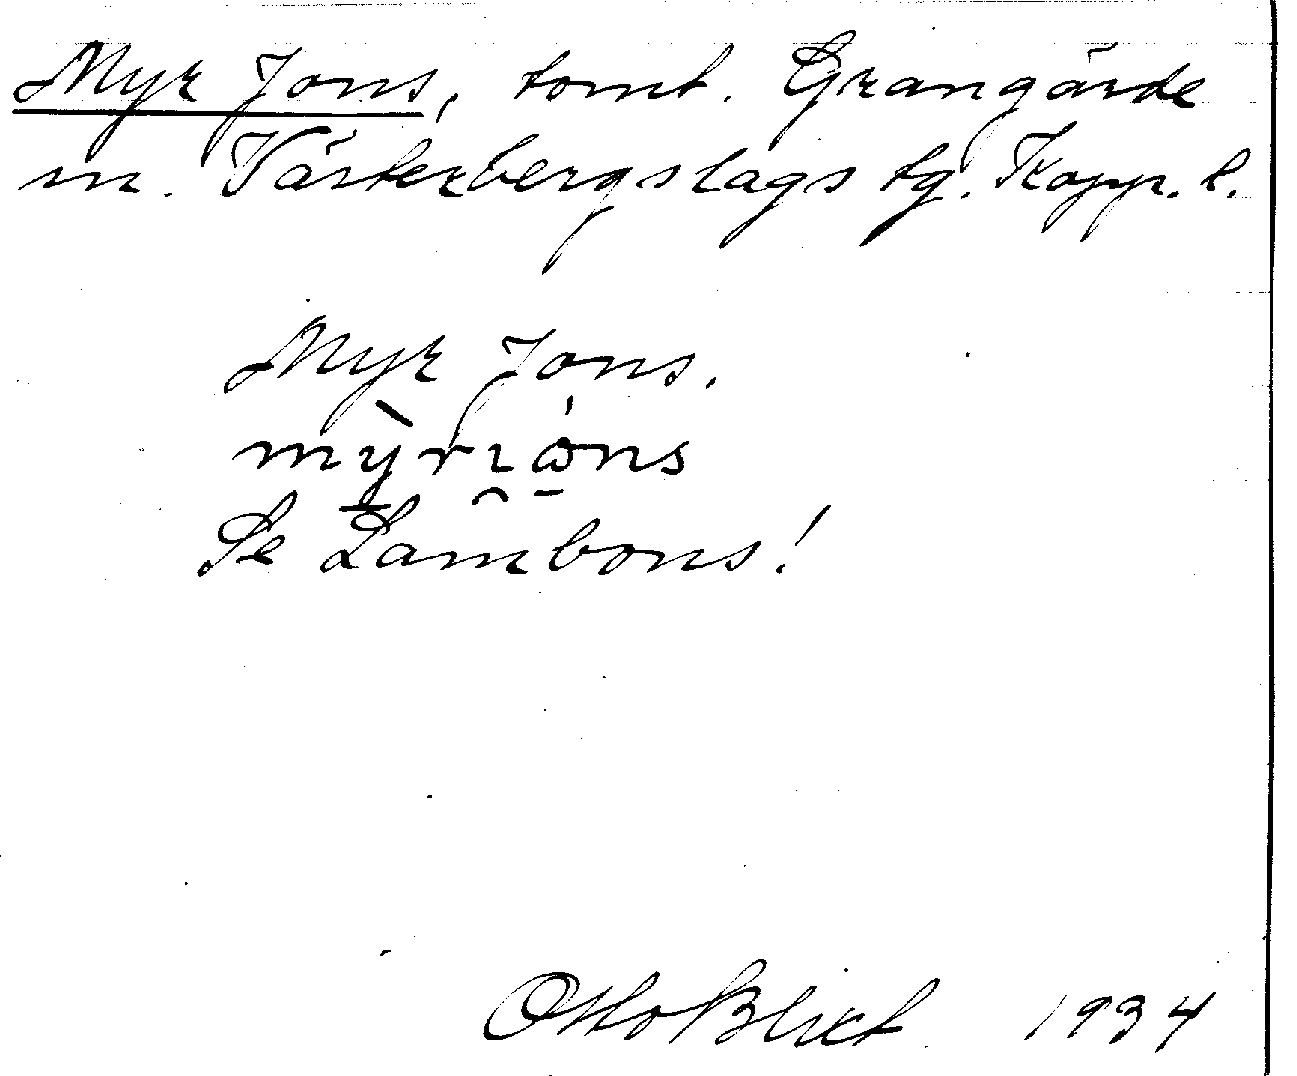 Myr Jons, tomt. Grangärde
sn. Västerbergslags tg. Kopp. l.
Myr Jons.
Se Lambons!
Otto Blixt 1934